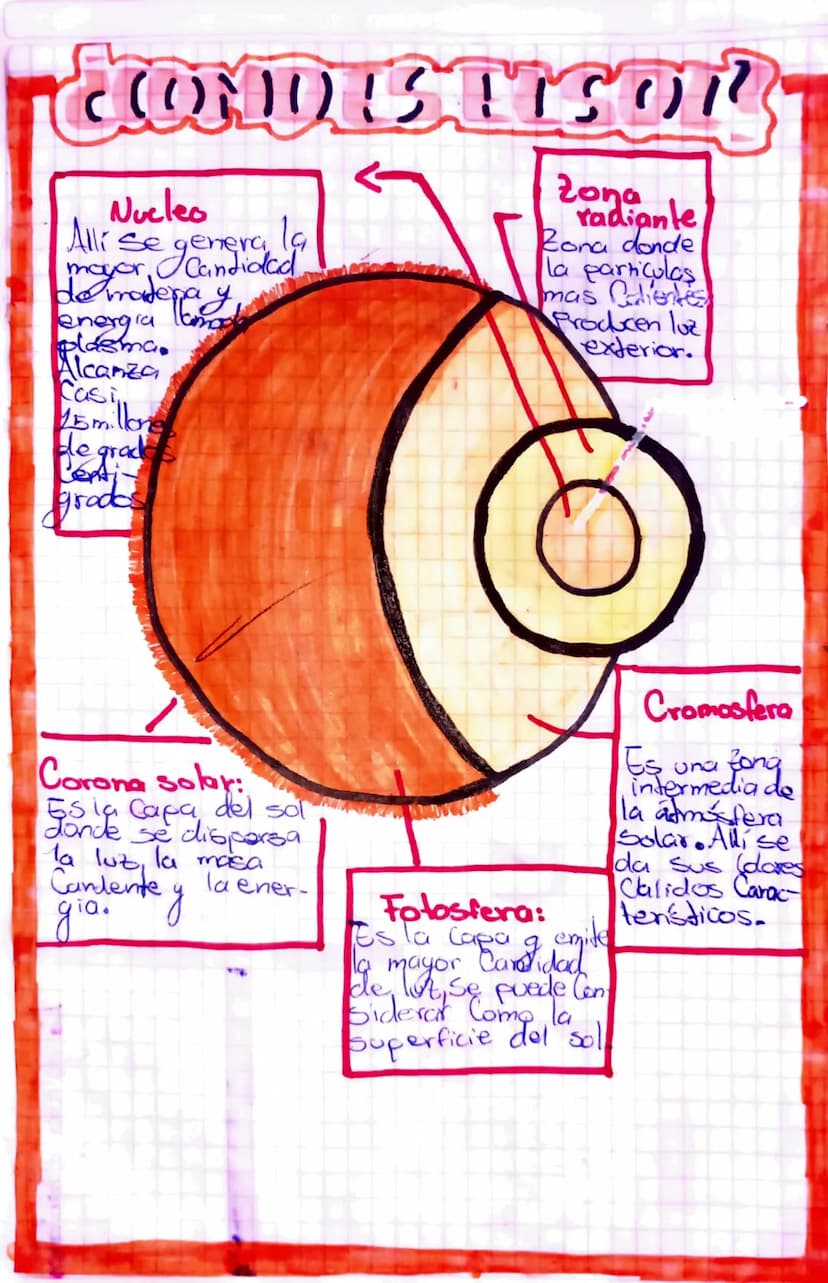 ¿COMO ES EL SOL?
Nucleo
Allí se genera la
mayor Cantidad
de materia y
energia llamada
plasma.
Alcanza
Casi
15 millones
de grados
Centi-
grados
Zona
radiante
Zona donde
la particulas
mas Calientes
Producen luz
exterior.
Corona solar:
Es la Capa del sol
donde se dispersa
la luz, la masa
Candente y la ener-
gia.
Fotosfera:
Es la Capa q emite
la mayor Cantidad
de luz, Se puede Con
siderar Como la
superficie del sol.
Cromosfera
Es una zona
intermedia de
la atmósfera
Solar. Allí se
da sus Colores
Calidos Carac-
terísticos.